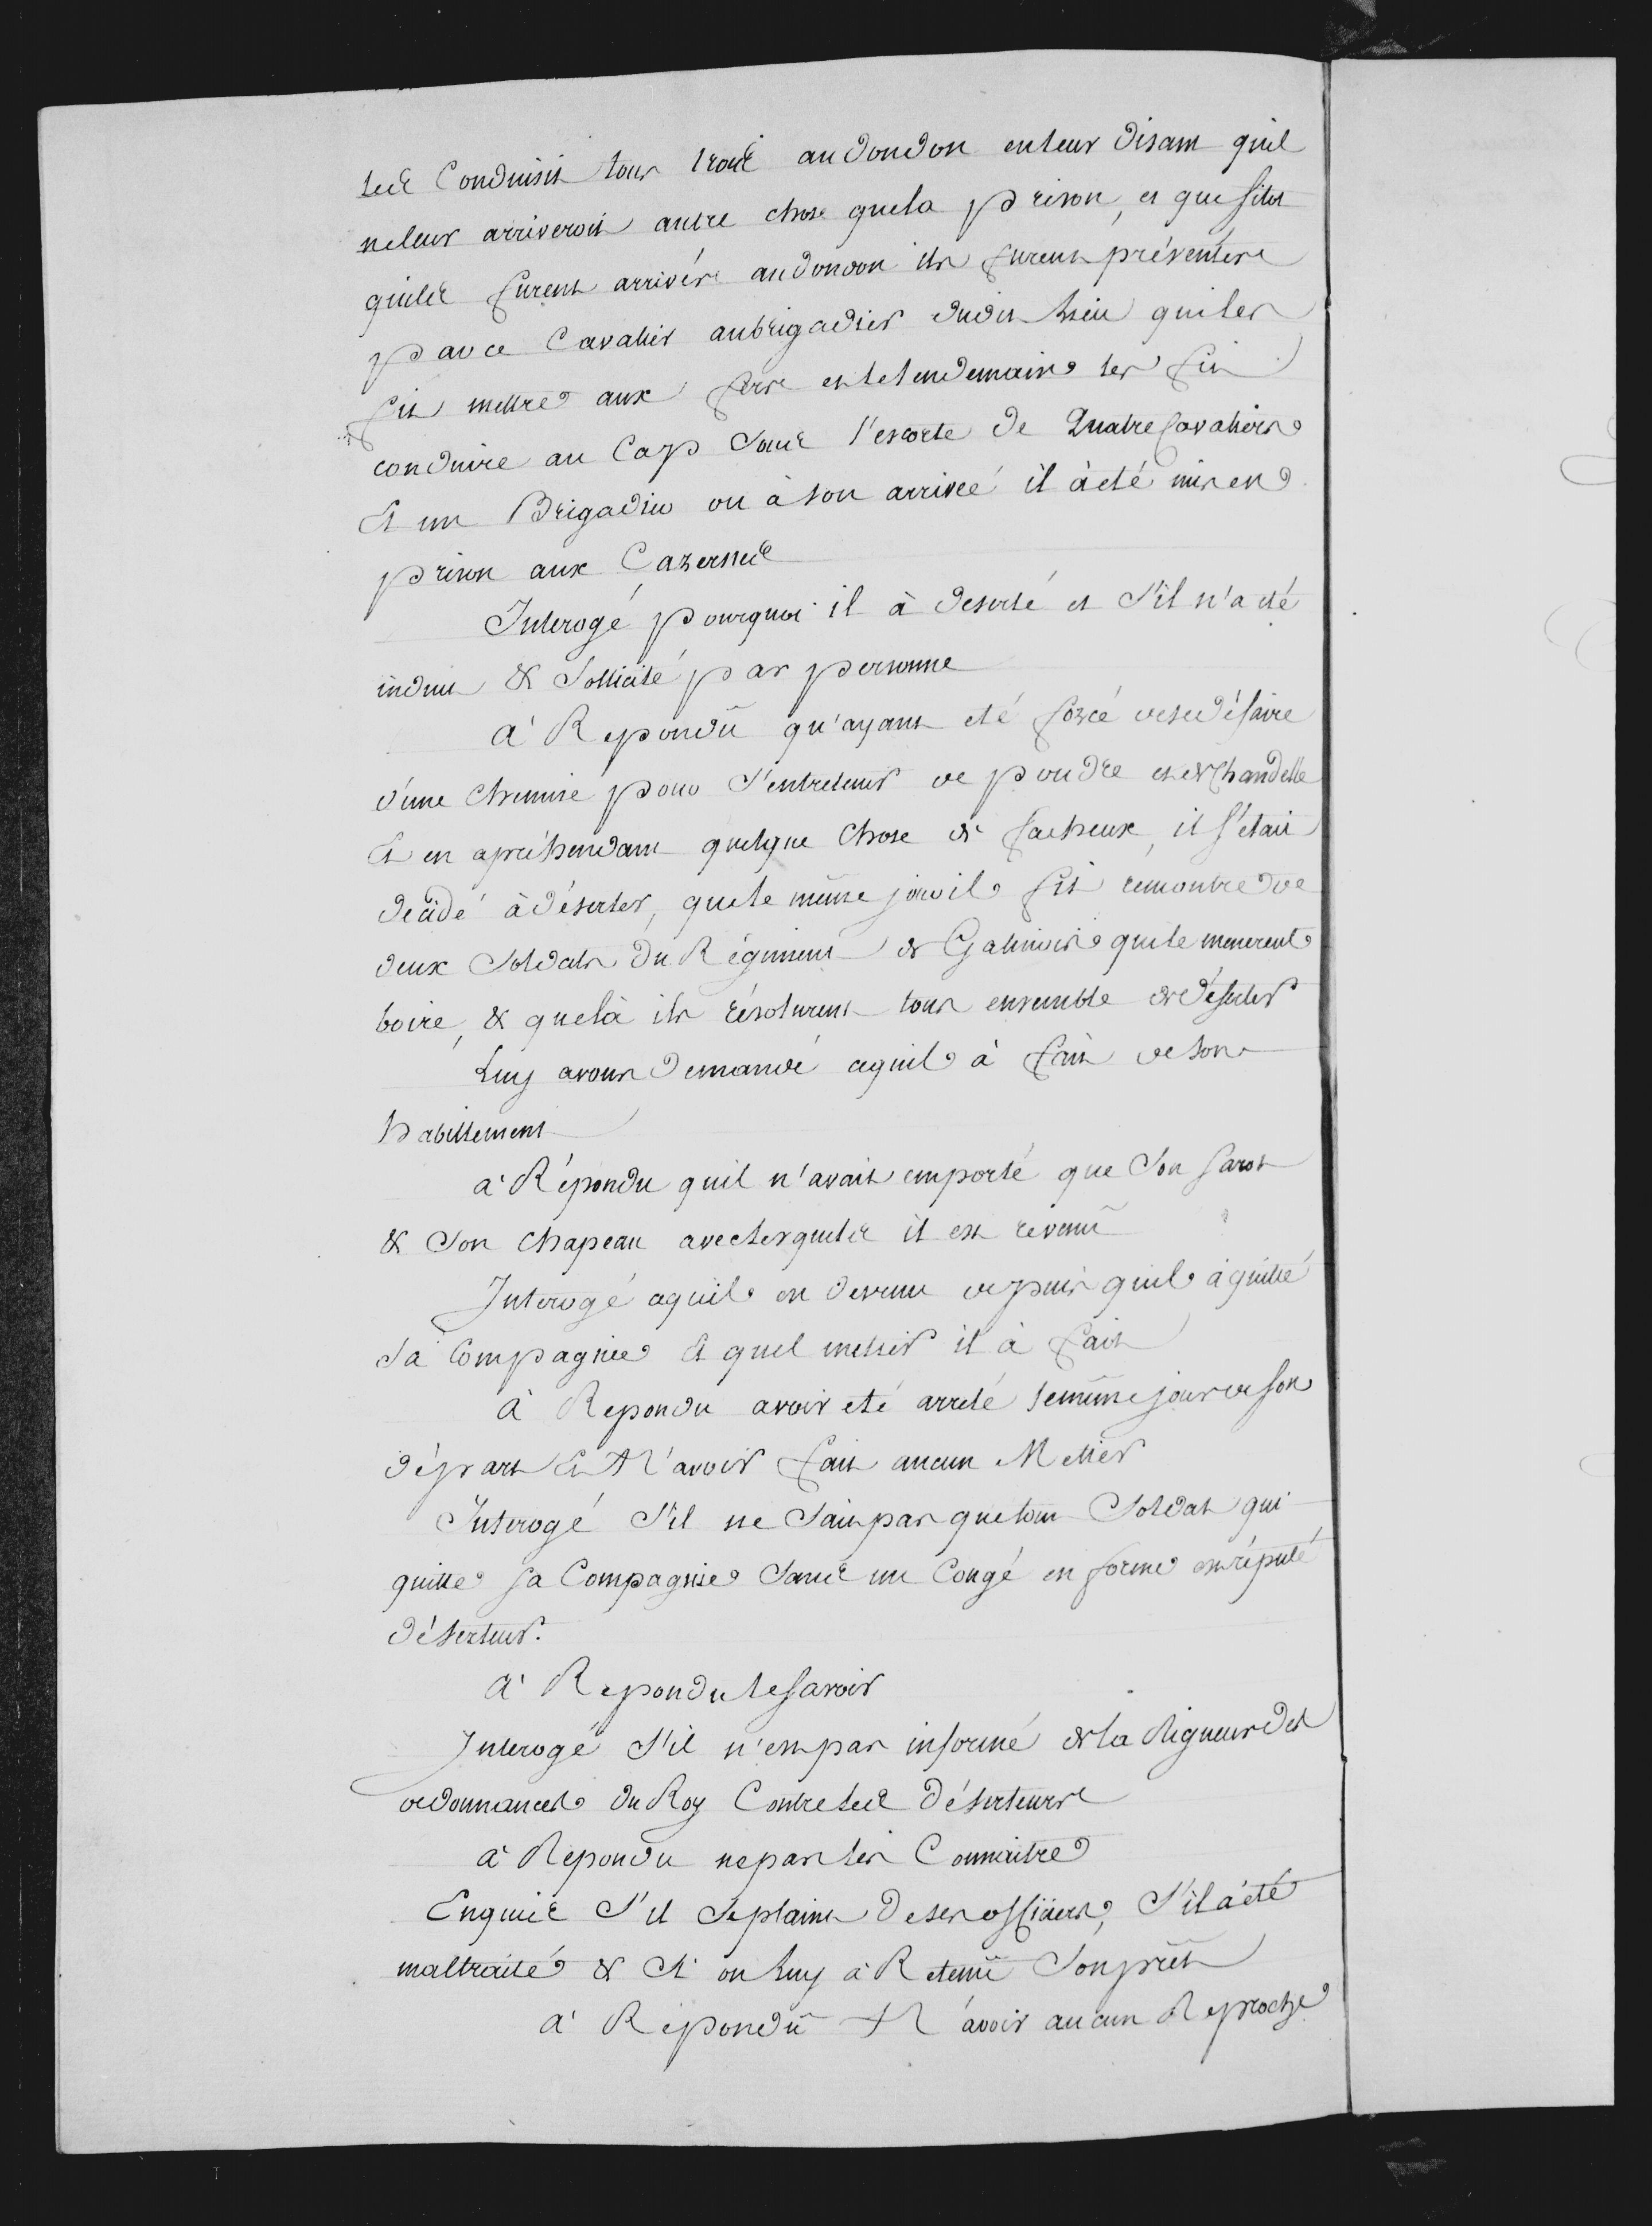 les Conduisit tous trois au dondon en leur disant quil
ne leur arriveroit autre chose que la prison, et que sitot
quiles furent arrivés au dondon ils furent présentés
par ce Cavalier au brigadier dudit Lieu qui les
fit mettre aux fers et le lendemain les fit
conduire au Cap Sous l'escorte de Quatre Cavaliers
Et un Brigadier ou à son arrivée il à eté mis en
prison aux Cazernes
Interogé pourquoi il à deserté et S'il n'a eté
induit & Sollicité par personne
à Repondu qu'ayant eté forcé de se défaire
d'une chemise pour S'entretenir de poudre et de Chandelle
Et en apréhendant quelque Chose de facheux, il S'étoit
decidé à déserter, que le même jour il fit rencontre de
deux Soldats du Régiment de Gatinois qui le menerent
boire, & que là ils résolurent tous ensemble de déserter
Luy avons demandé ce quil à fait de son
habillement
à Répondu quil n'avait emporté que Son Sarot
& Son chapeau avec les quels il est revenu
Interogé ce quil en devenu depuis quil à quitté
Sa Compagnie Et quel metier il à fait
à Repondu avoir eté arreté le même jour de son
départ Et N'avoir fait aucun Metier
Interogé S'il ne Sait pas que tout Soldat qui
quitte sa Compagnie Sans un Congé en forme est réputé
déserteur.
à Repondu le Savoir
Interogé S'il n'est pas informé de la Rigueur des
ordonnances du Roy Contre les Déserteurs
à Répondu ne pas les Connaitre
Enquis S'il Se plaint de ses officiers, S'il à été
maltraité & Si on Luy à Retenu Son prêt
à Répondu N'avoir aucun Reproche